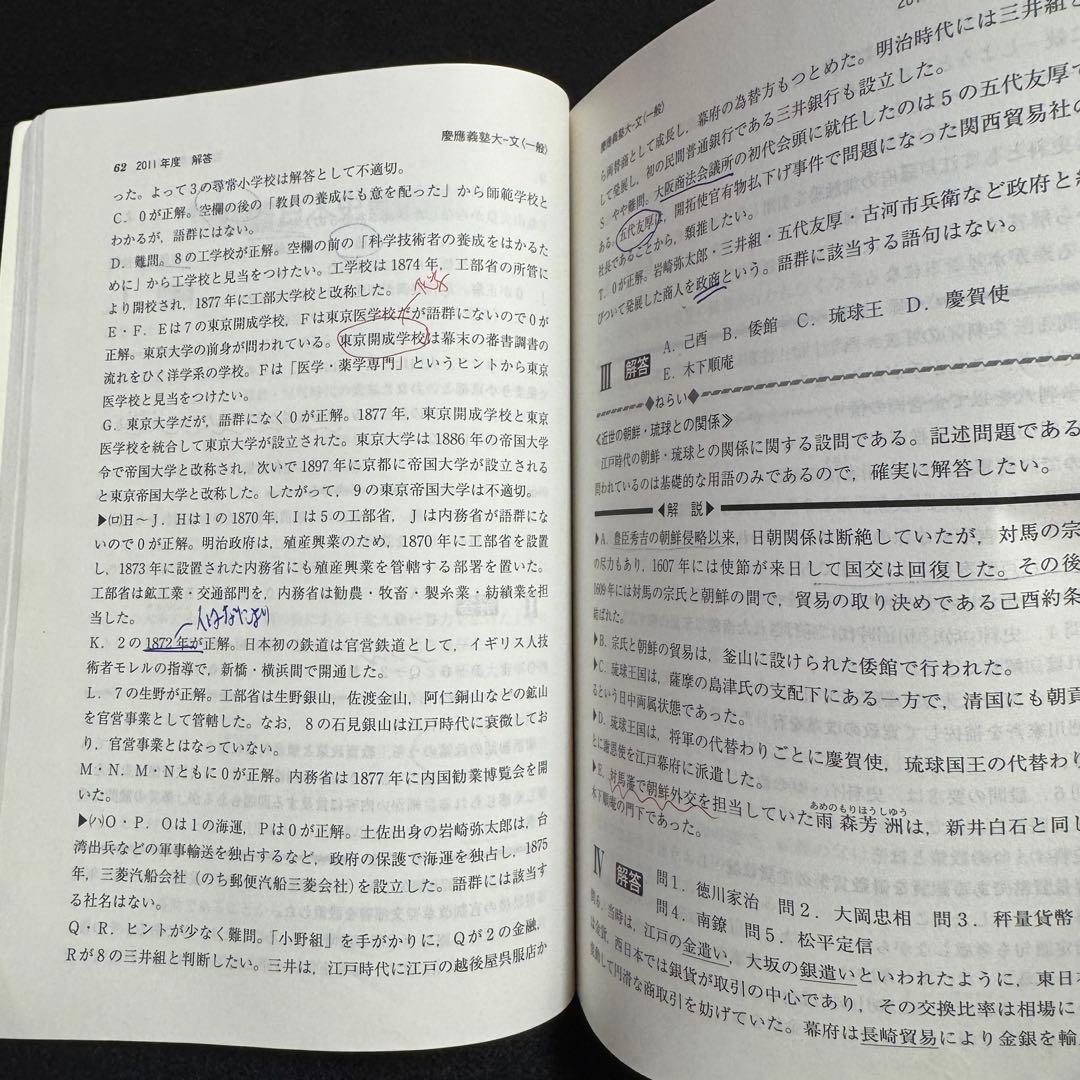 62 2011年度 解答
慶應義塾大-文(一般)
った。よって3の尋常小学校は解答として不適切。
C．0が正解。空欄の後の「教員の養成にも意を配った」から師範学校と
わかるが，語群にはない。
D．難問。8の工学校が正解。空欄の前の「科学技術者の養成をはかるた
めに」から工学校と見当をつけたい。工学校は1874年，工部省の所管に
より開校され，1877年に工部大学校と改称した。
E・F．Eは7の東京開成学校，Fは東京医学校だが語群にないので0が
正解。東京大学の前身が問われている。東京開成学校は幕末の蕃書調書の
流れをひく洋学系の学校。Fは「医学・薬学専門」というヒントから東京
医学校と見当をつけたい。
G．東京大学だが，語群になく0が正解。1877年，東京開成学校と東京
医学校を統合して東京大学が設立された。東京大学は1886年の帝国大学
令で帝国大学と改称され，次いで1897年に京都に帝国大学が設立される
と東京帝国大学と改称した。したがって，9の東京帝国大学は不適切。
▶(ロ)H～J．Hは1の1870年，Iは5の工部省，Jは内務省が語群にな
いので0が正解。明治政府は，殖産興業のため，1870年に工部省を設置
し，1873年に設置された内務省にも殖産興業を管轄する部署を置いた。
工部省は鉱工業・交通部門を，内務省は勧農・牧畜・製糸業・紡績業を担
当した。
K．2の1872年が正解。日本初の鉄道は官営鉄道として，イギリス人技
術者モレルの指導で，新橋・横浜間で開通した。
L．7の生野が正解。工部省は生野銀山，佐渡金山，阿仁銅山などの鉱山
を官営事業として管轄した。なお，8の石見銀山は江戸時代に衰微してお
り，官営事業とはなっていない。
M・N．M・Nともに0が正解。内務省は1877年に内国勧業博覧会を開
いた。
▶(ハ)O・P．Oは1の海運，Pは0が正解。土佐出身の岩崎弥太郎は，台
湾出兵などの軍事輸送を独占するなど，政府の保護で海運を独占し，1875
年，三菱汽船会社（のち郵便汽船三菱会社）を設立した。語群には該当す
る社名はない。
Q・R．ヒントが少なく難問。「小野組」を手がかりに，Qが2の金融，
Rが8の三井組と判断したい。三井は，江戸時代に江戸の越後屋呉服店か
慶應義塾大-文(一般)
ら両替商として成長し，幕府の為替方もつとめた。明治時代には三井組と
して発展し，初の民間普通銀行である三井銀行も設立した。
S．やや難問。大阪商法会議所の初代会頭に就任したのは5の五代友厚で
ある。五代友厚は，開拓使官有物払下げ事件で問題になった関西貿易社の
社長であることから，類推したい。
T．0が正解。岩崎弥太郎・三井組・五代友厚・古河市兵衛など政府と
びついて発展した商人を政商という。語群に該当する語句はない。
III 解答 A．己酉 B．倭館 C．琉球王 D．慶賀使
E．木下順庵
◆ねらい◆
≪近世の朝鮮・琉球との関係≫
江戸時代の朝鮮・琉球との関係に関する設問である。記述問題である
問われているのは基礎的な用語のみであるので，確実に解答したい。
◀解 説▶
▶A．豊臣秀吉の朝鮮侵略以来，日朝関係は断絶していたが，対馬の宗
の尽力もあり，1607年には使節が来日して国交は回復した。その後
1609年には対馬の宗氏と朝鮮の間で，貿易の取り決めである己酉約条
結ばれた。
▶B．宗氏と朝鮮の貿易は，釜山に設けられた倭館で行われた。
▶C．琉球王国は，薩摩の島津氏の支配下にある一方で，清国にも朝貢
るという日中両属状態であった。
▶D．琉球王国は，将軍の代替わりごとに慶賀使，琉球国王の代替わり
とに謝恩使を江戸幕府に派遣した。
▶E．対馬藩で朝鮮外交を担当していた雨森芳洲は，新井白石と同じ
あめのもりほうしゅう
木下順庵の門下であった。
IV 解答 問1．徳川家治 問2．大岡忠相 問3．秤量貨幣
問4．南鐐 問5．松平定信
問6．当時は，江戸の金遣い，大坂の銀遣いといわれたように，東日本
は金貨，西日本では銀貨が取引の中心であり，その交換比率は相場に
変動して円滑な商取引を妨げていた。幕府は長崎貿易により金銀を輸